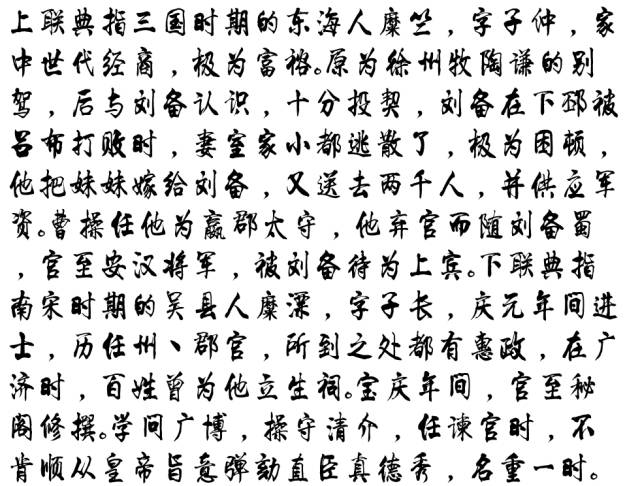 上联典指三国时期的东海人糜竺，字子仲，家
中世代经商，极为富裕。原为徐州牧陶谦的别
驾，后与刘备认识，十分投契，刘备在下邳被
吕布打败时，妻室家小都逃散了，极为困顿，
他把妹妹嫁给刘备，又送去两千人，并供应军
资。曹操任他为嬴郡太守，他弃官而随刘备蜀
，官至安汉将军，被刘备待为上宾。下联典指
南宋时期的吴县人糜溧，字子长，庆元年间进
士，历任州丶郡官，所到之处都有惠政，在广
济时，百姓曾为他立生祠。宝庆年间，官至秘
阁修撰。学问广博，操守清介，任谏官时，不
肯顺从皇帝旨意弹劾直臣真德秀，名重一时。